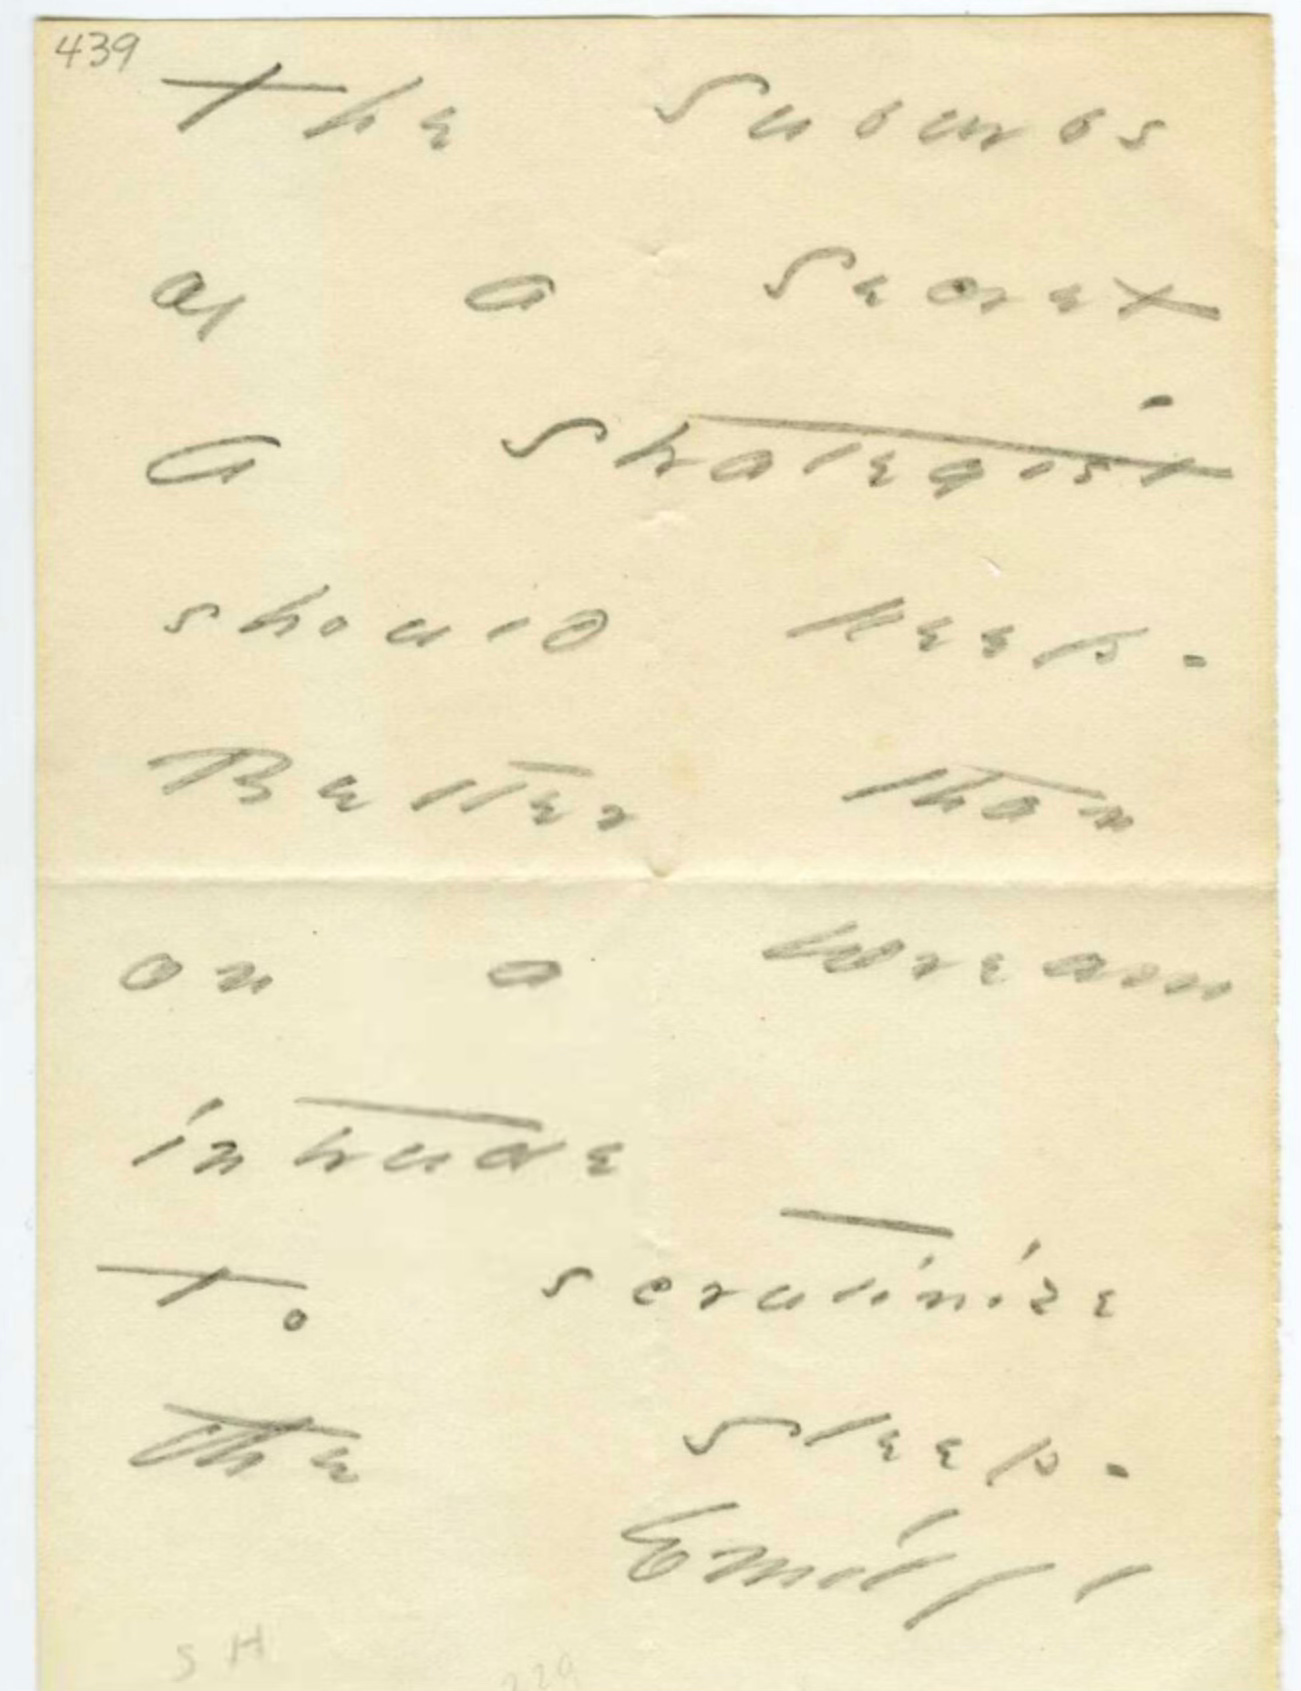 439
The Suburbs
of a Secret
A Strategist
should keep -
Better than
on a Dream
intrude
To scrutinize
the Sleep -
Emily -
S H